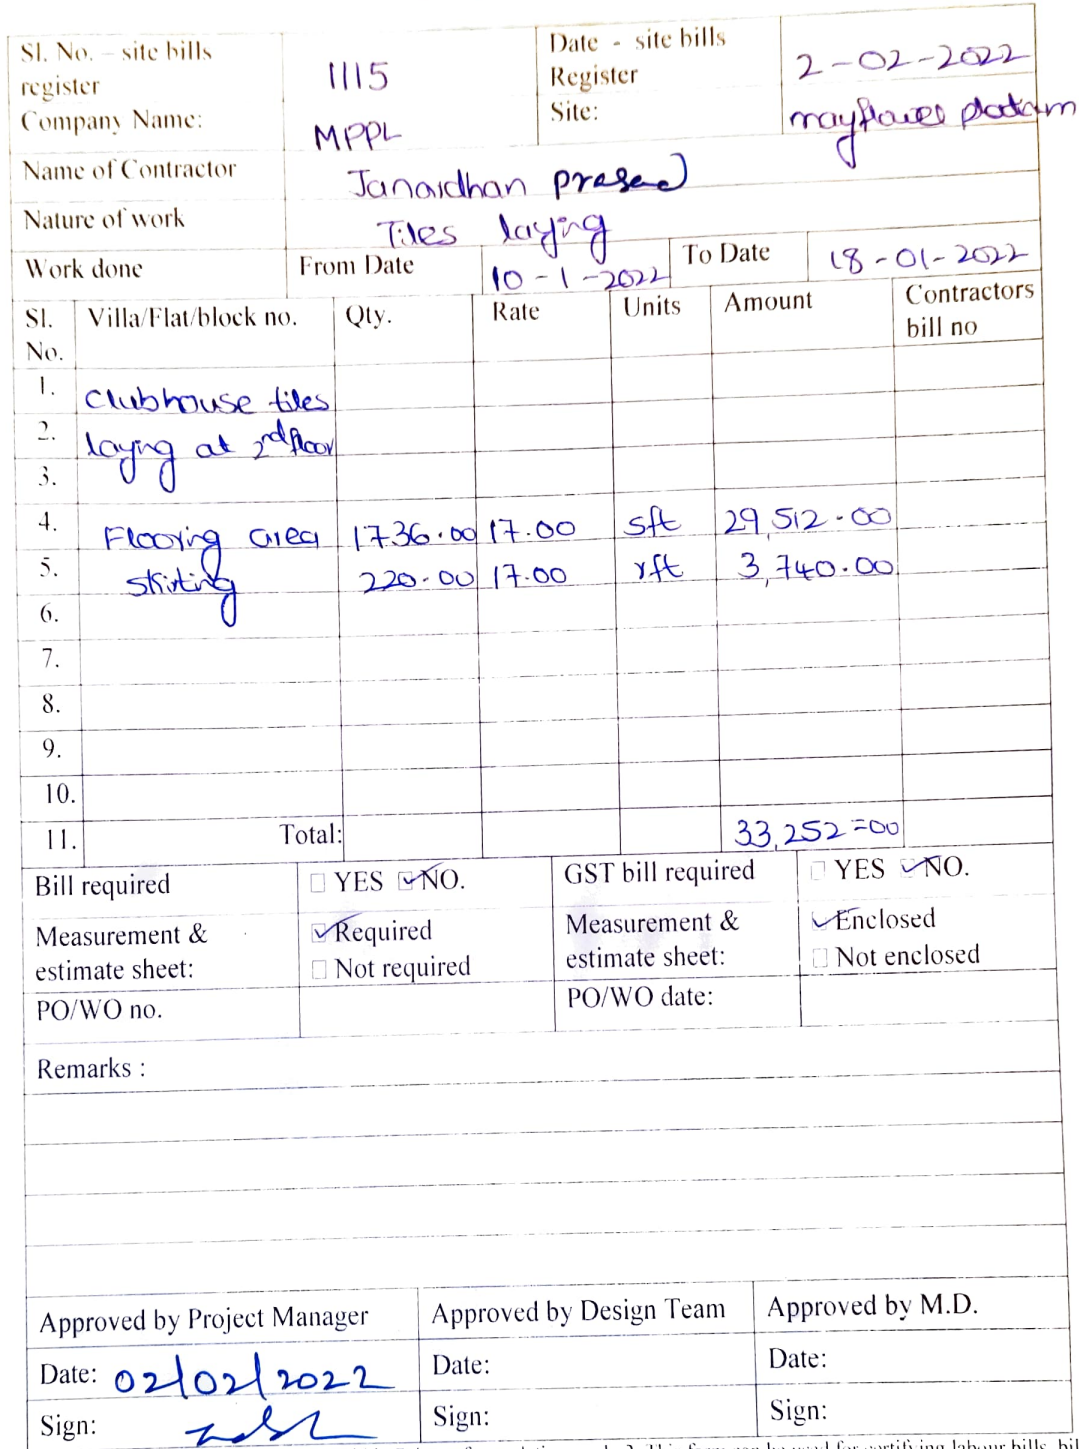 Sl. No. – site bills register 1115 Date - site bills Register 2-02-2022
Company Name: MPPL Site: mayflower platinum
Name of Contractor Janardhan prasad
Nature of work Tiles laying
Work done From Date 10-1-2022 To Date 18-01-2022
Sl. No. Villa/Flat/block no. Qty. Rate Units Amount Contractors bill no
1. Clubhouse tiles
2. laying at 2nd floor
3.
4. Flooring area 1736.00 17.00 sft 29,512.00
5. skirting 220.00 17.00 rft 3,740.00
6.
7.
8.
9.
10.
11. Total: 33,252=00
Bill required YES NO. GST bill required YES NO.
Measurement & estimate sheet: Required Not required Measurement & estimate sheet: Enclosed Not enclosed
PO/WO no. PO/WO date:
Remarks :
Approved by Project Manager Approved by Design Team Approved by M.D.
Date: 02/02/2022 Date: Date:
Sign: Sign: Sign: